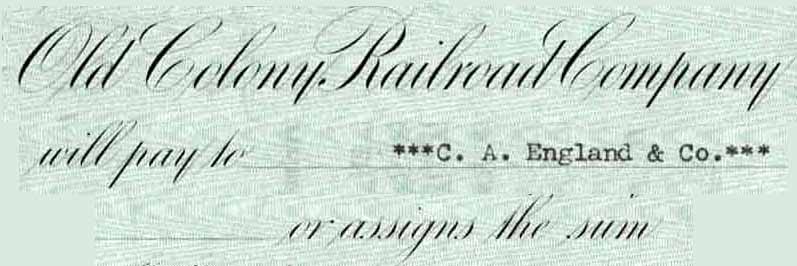 Old Colony Railroad Company
will pay to ***C. A. England & Co.***
or assigns the sum